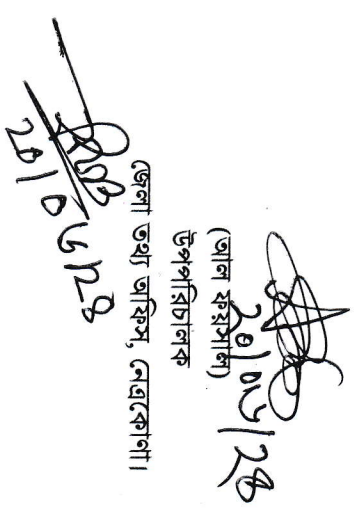 ২০/০৬/২৪
(আল ফয়সাল)
উপপরিচালক
জেলা তথ্য অফিস, নেত্রকোণা।
২০/০৬/২৪